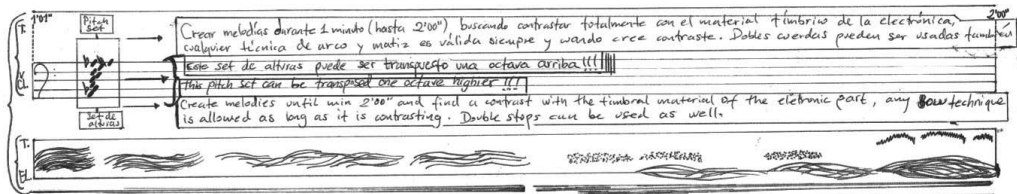 1'01"
2'00"
T.
Pitch set
Crear melodías durante 1 minuto (hasta 2'00") buscando contrastar totalmente con el material tímbrico de la electrónica,
cualquier técnica de arco y matiz es válida siempre y cuando cree contraste. Dobles cuerdas pueden ser usadas también
este set de alturas puede ser transpuesto una octava arriba!!!
this pitch set can be transposed one octave higher !!!
Create melodies until min 2'00" and find a contrast with the timbral material of the eletronic part, any bow technique
is allowed as long as it is contrasting. Double stops can be used as well.
Set de alturas
T.
EL